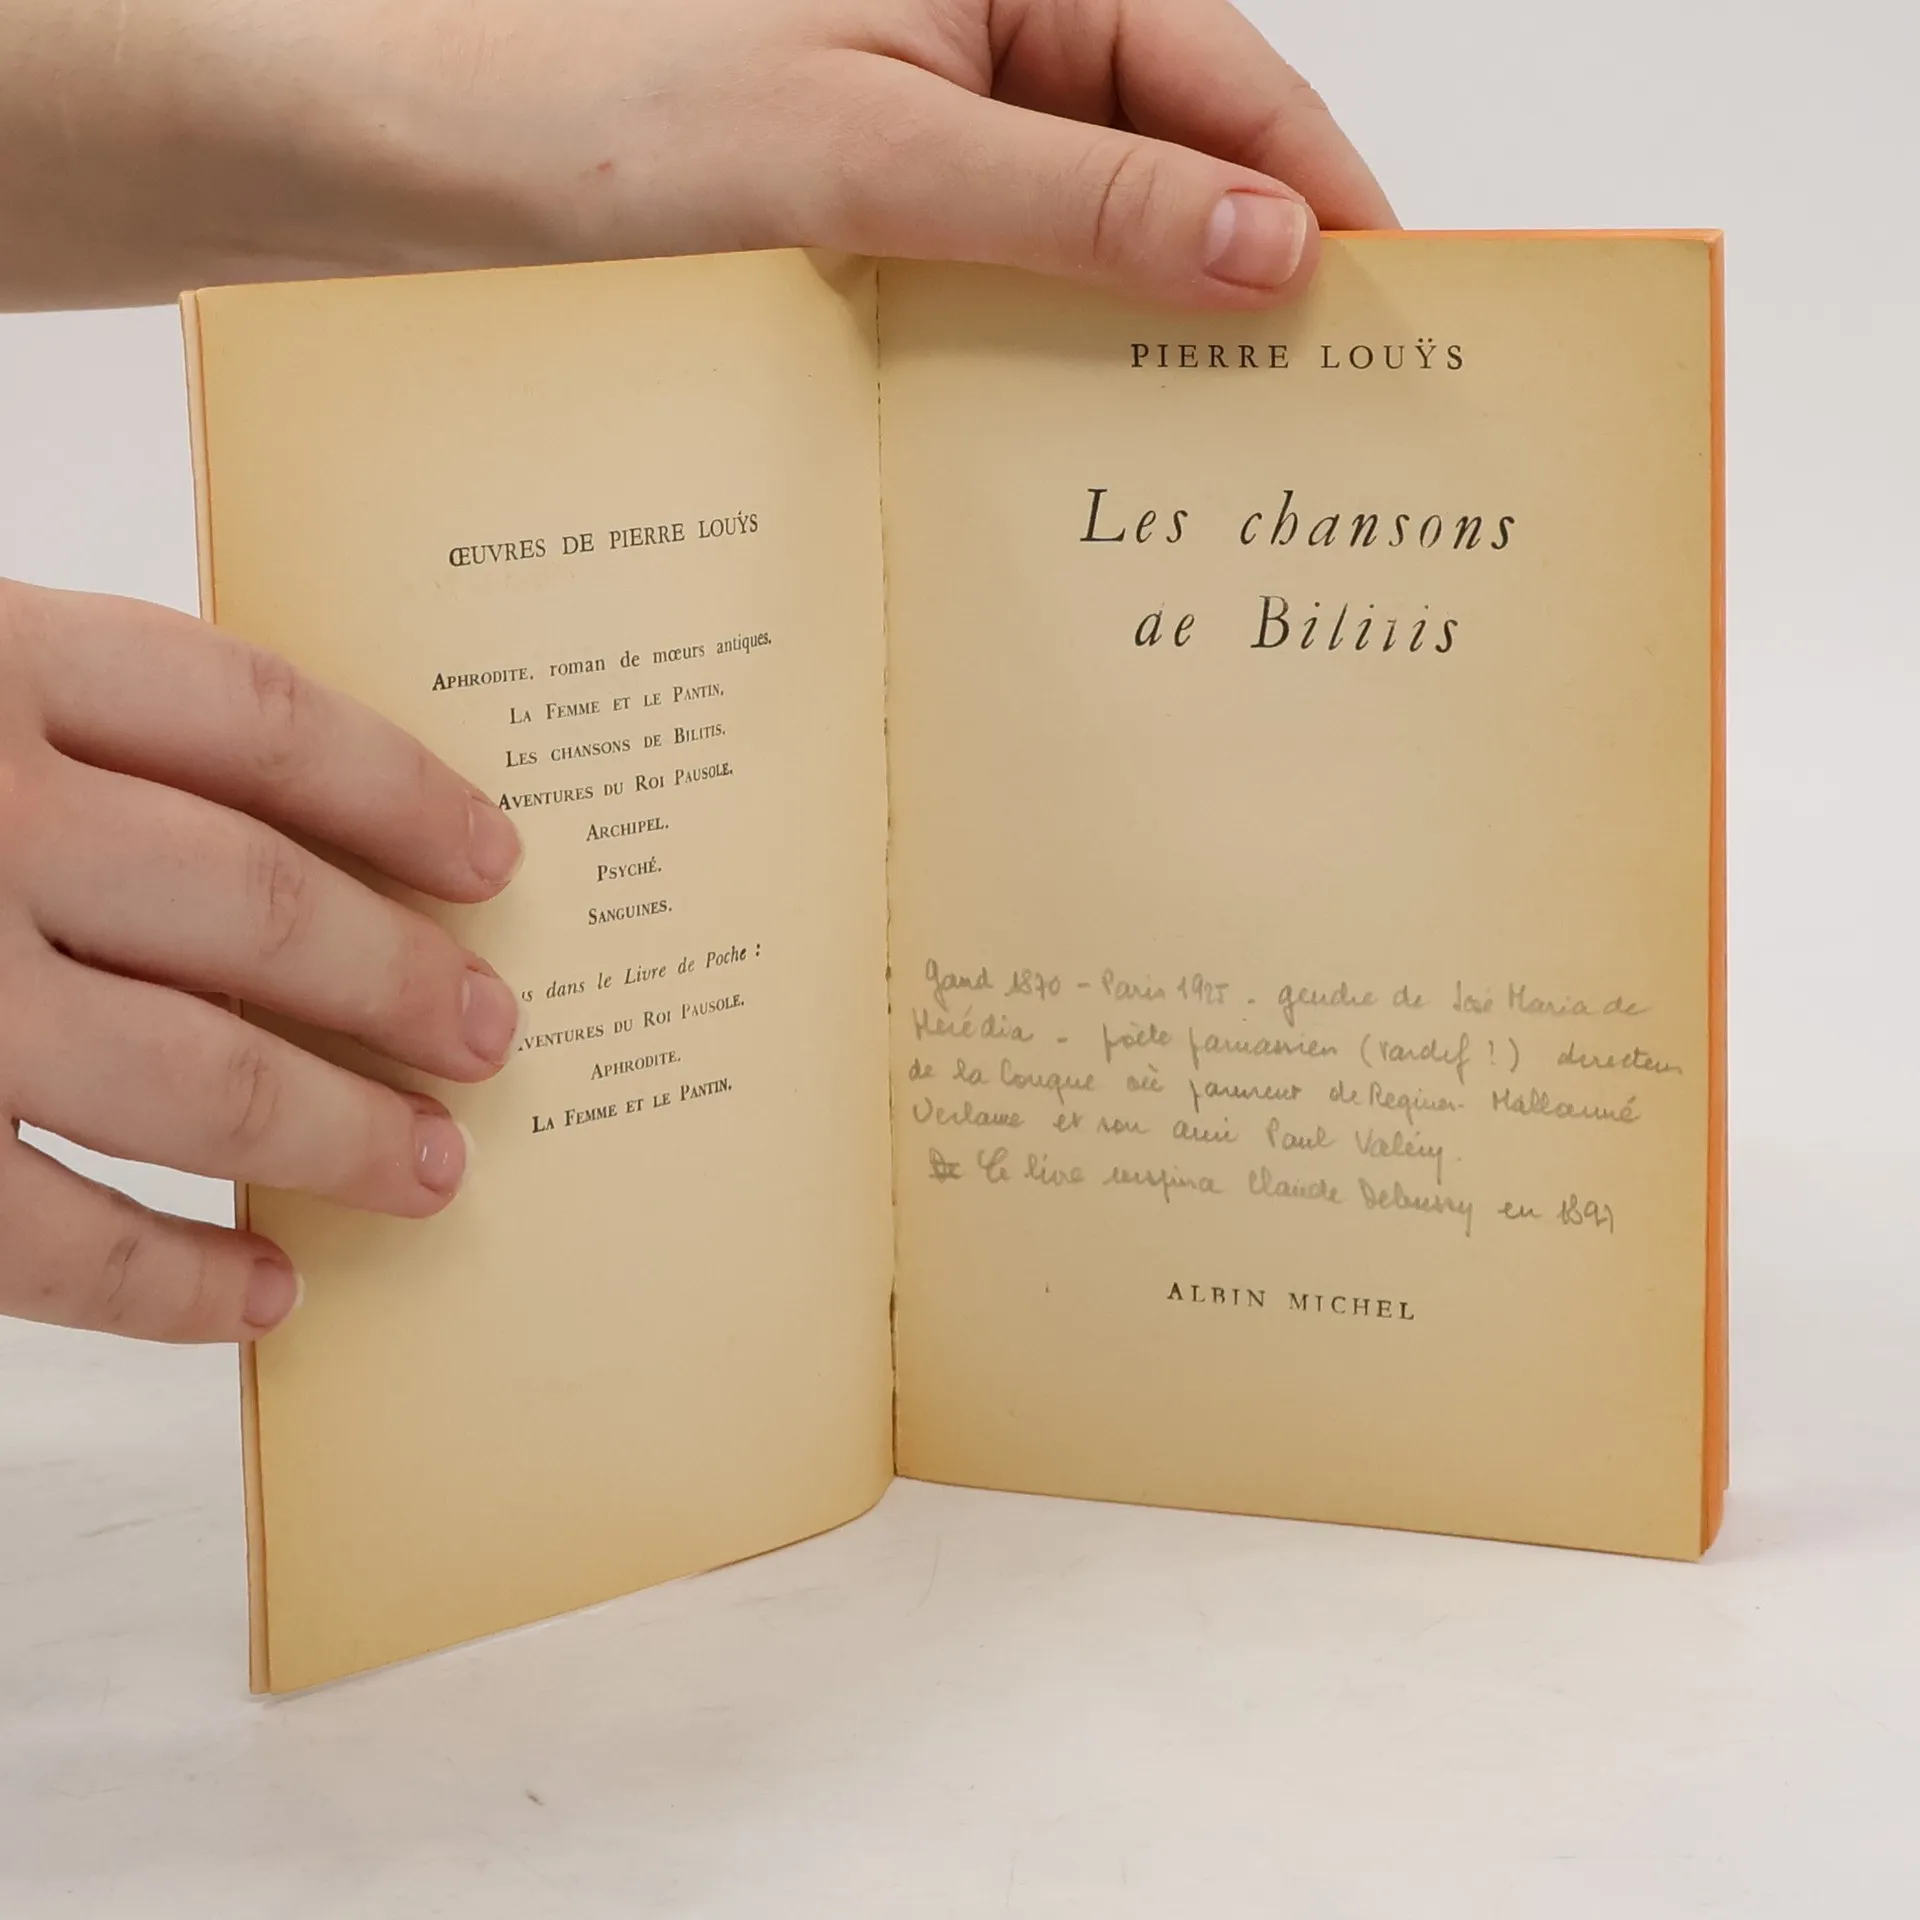 ŒUVRES DE PIERRE LOUŸS
APHRODITE, roman de mœurs antiques.
LA FEMME ET LE PANTIN.
LES CHANSONS DE BILITIS.
AVENTURES DU ROI PAUSOLE.
ARCHIPEL.
PSYCHÉ.
SANGUINES.
dans le Livre de Poche :
VENTURES DU ROI PAUSOLE.
APHRODITE.
LA FEMME ET LE PANTIN.
PIERRE LOUŸS
Les chansons
de Bilitis
Gand 1870 - Paris 1925 - gendre de José Maria de
Herédia - poète parnassien (tardif !) directeur
de la Conque où parurent de Regnier - Mallarmé
Verlaine et son ami Paul Valéry.
Ce livre inspira Claude Debussy en 1897
ALBIN MICHEL